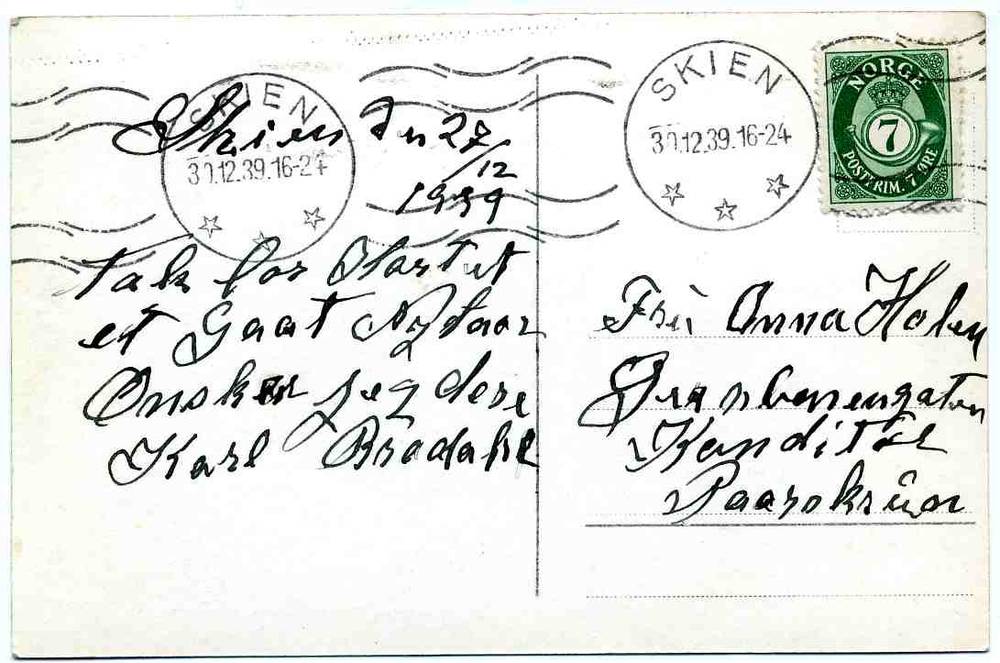 SKIEN
30.12.39.16-24
SKIEN
30.12.39.16-24
NORGE
7
POSTFRIM. 7 ØRE
Skien Dn 27/12
1939
Tak for Kortet
et Gaat Nytaar
Ønsker jeg dere
Karl Bradahl
Frü Anna Holen
Kanditür